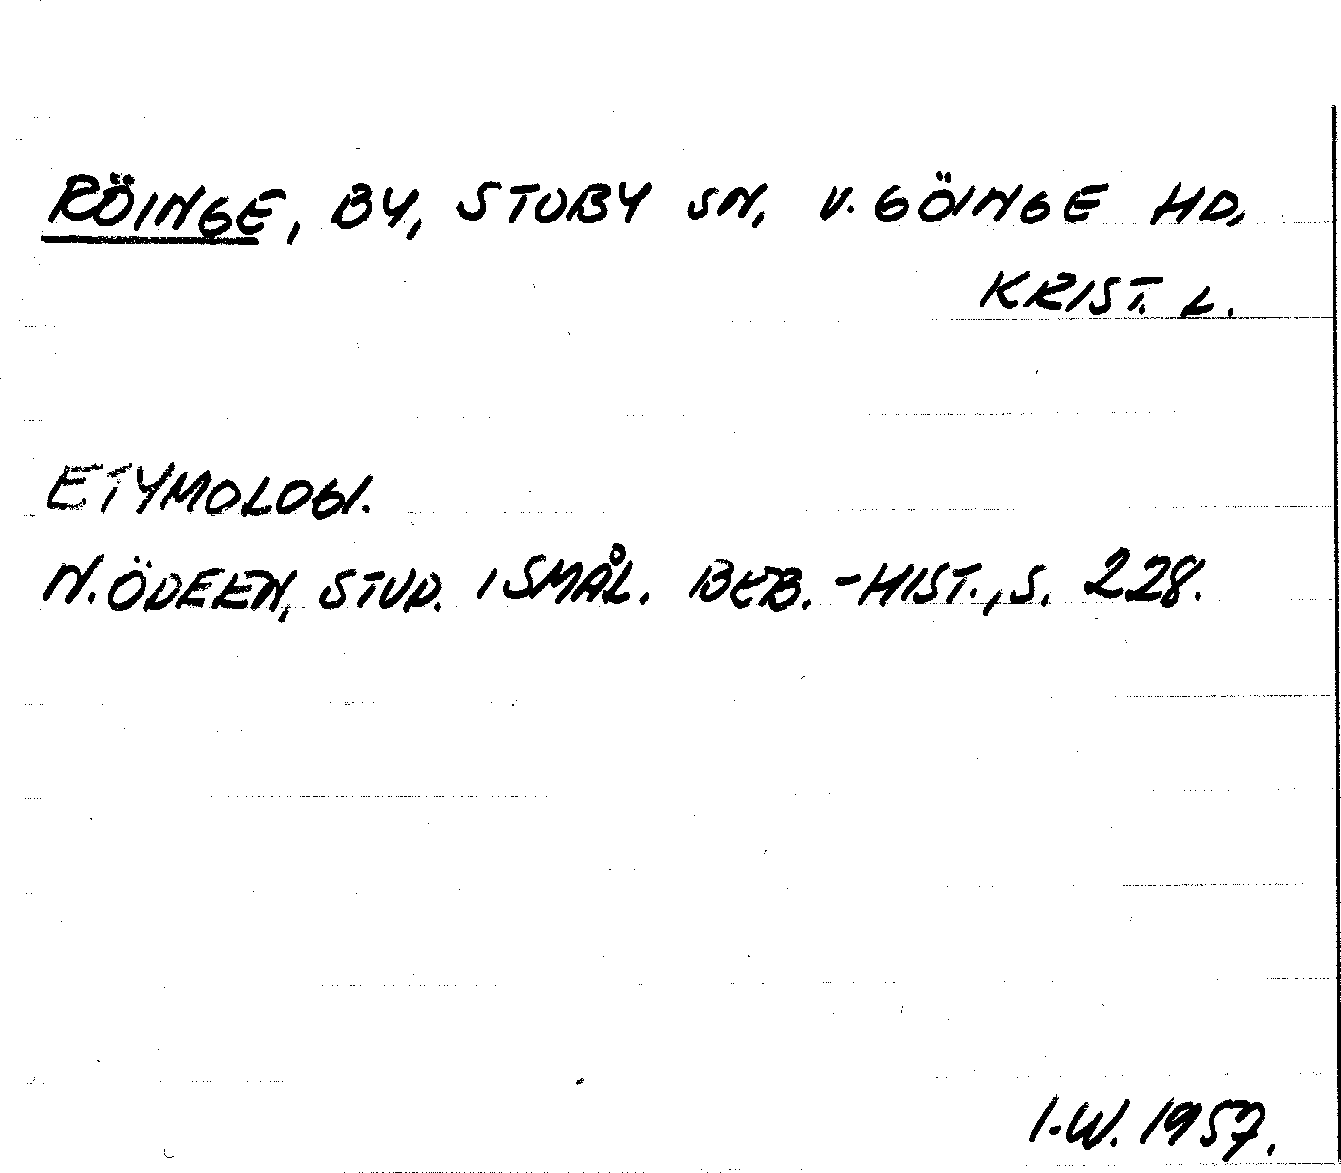 RÖINGE, BY, STOBY SN, V. GÖINGE HD,
KRIST. L.
ETYMOLOGI.
N. ÖDEEN, STUD. I SMÅL. BEB.-HIST., S. 228.
I.W. 1957.